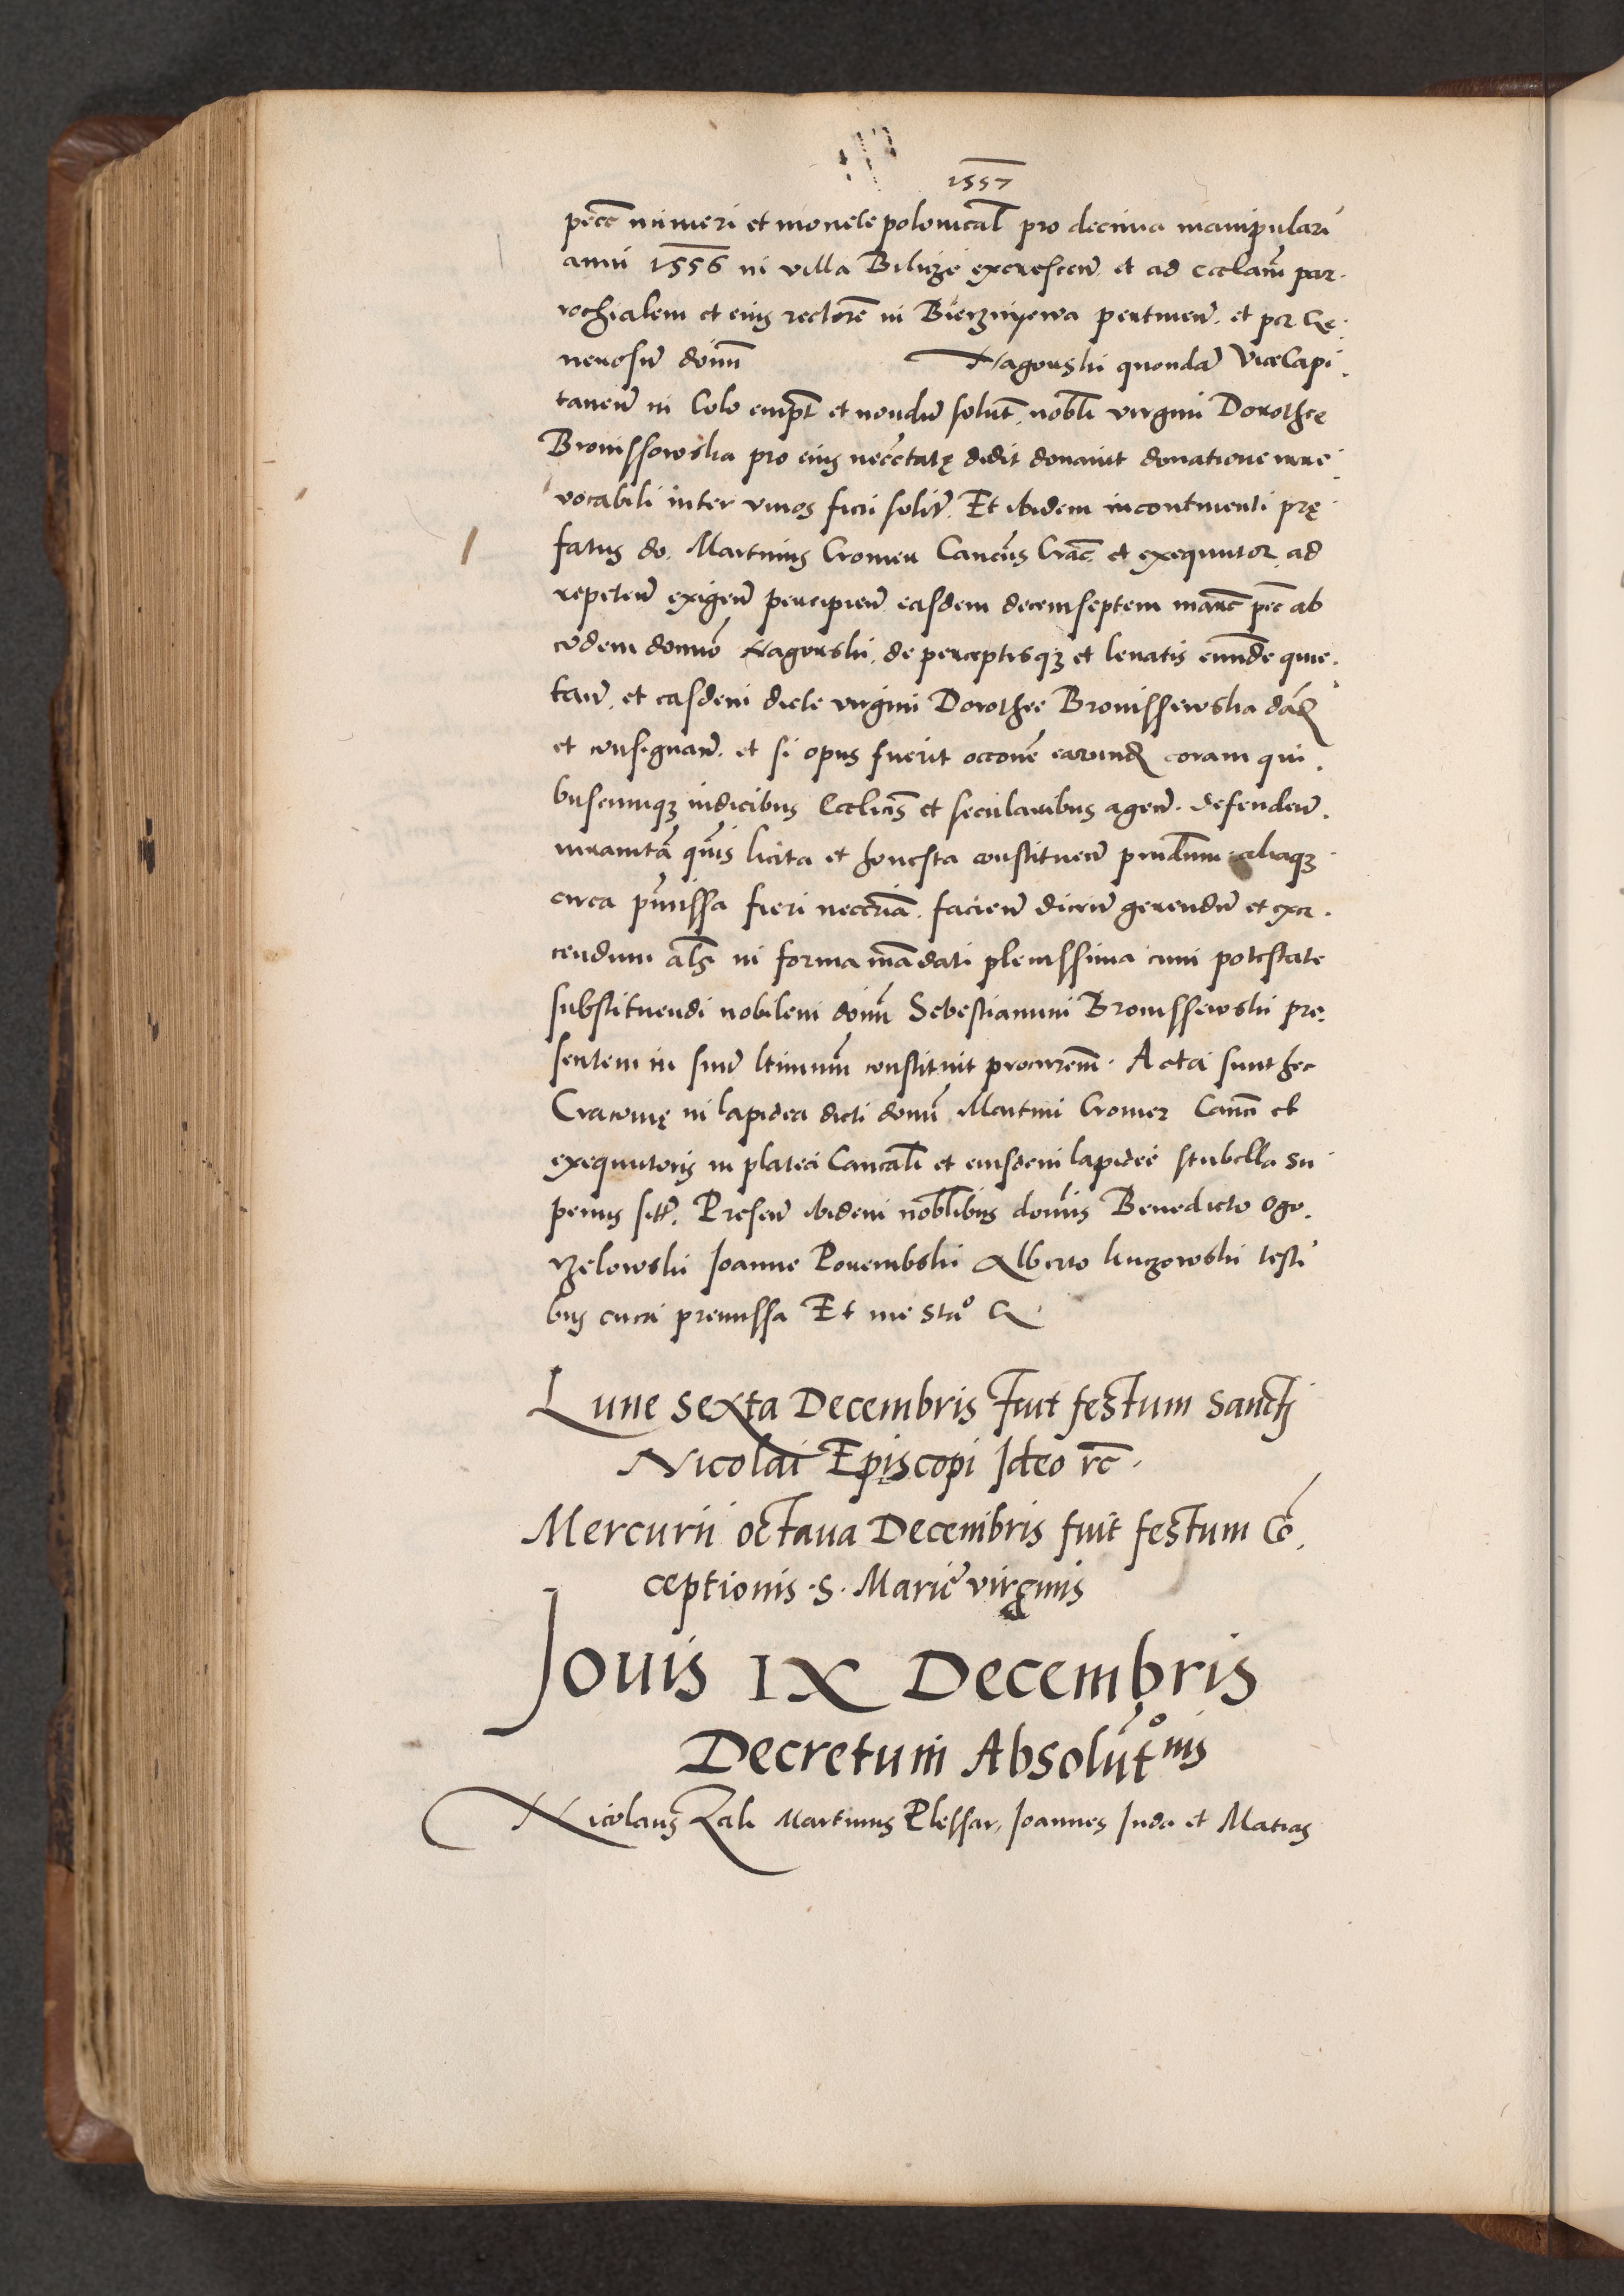 1557
pecc numeri et monete polonical pro decima manipulari
anni 1556 in villa Bilicze excrescen̄ et ad eccl̄am par-
rochialem et eius rectorē in Bierzmyewa pertinen̄ et per Ge-
nerosū dōm̄ Nagorski quondā ViceCapi-
taneū in Colo empt̄ et nondū solut̄ nobl̄i virgini Dorothee
Bronissowska pro eius necc̄tatę dedit donavit donatione irre-
vocabili inter vivos fieri solit̄. Et ibidem incontinenti prę
fatus do. Martinus Cromer Cancūs Crac̄ et exequutor ad
repeten̄ exigen̄ percipien̄ easdem decemseptem marc̄ pec̄ ab
eodem domīo Nagorski de perceptisqꝫ et levatis eundē quie-
tan̄ et easdem dicte virgini Dorothee Bronissewska dād
et consignan̄ et si opus fuerit occōne earund coram qui-
buscumqꝫ iudicibus Eccl̄icis et secularibus agen̄ defenden̄
iuramtā quēis licita et honesta constituen̄ prudum aliaqꝫ
circa pr̄missa fieri necc̄riā facien̄ dicen̄ gerendū et exer-
cendum al̄s in forma mādati plenissima cum potestate
substituendi nobilem dōm̄ Sebestianum Bronissewski pre-
sentem in suū l̄timum̄ constituit procurem̄. Acta sunt hec
Cracovię in lapidea dicti domī Martini Cromer Canci et
exequutoris in platea Cancal̄i et eiusdem lapidee stubella su
perius sitt̄. Presen̄ ibidem nobl̄ibus domīis Benedicto Ogo-
rzelowski Joanne Porembski Alberto Luczowski testi
bus circa premissa Et me Sta°
Lune sexta Decembris Fuit festum Sancti
Nicolai Episcopi Ideo rc̄.
Mercurii octava Decembris fuit festum Cō-
ceptionis .S. Marie virginis
Jovis IX Decembris
Decretum Absolut°nis
Nicolaus Zak Martinus Plessar, Joannes Juda et Matias